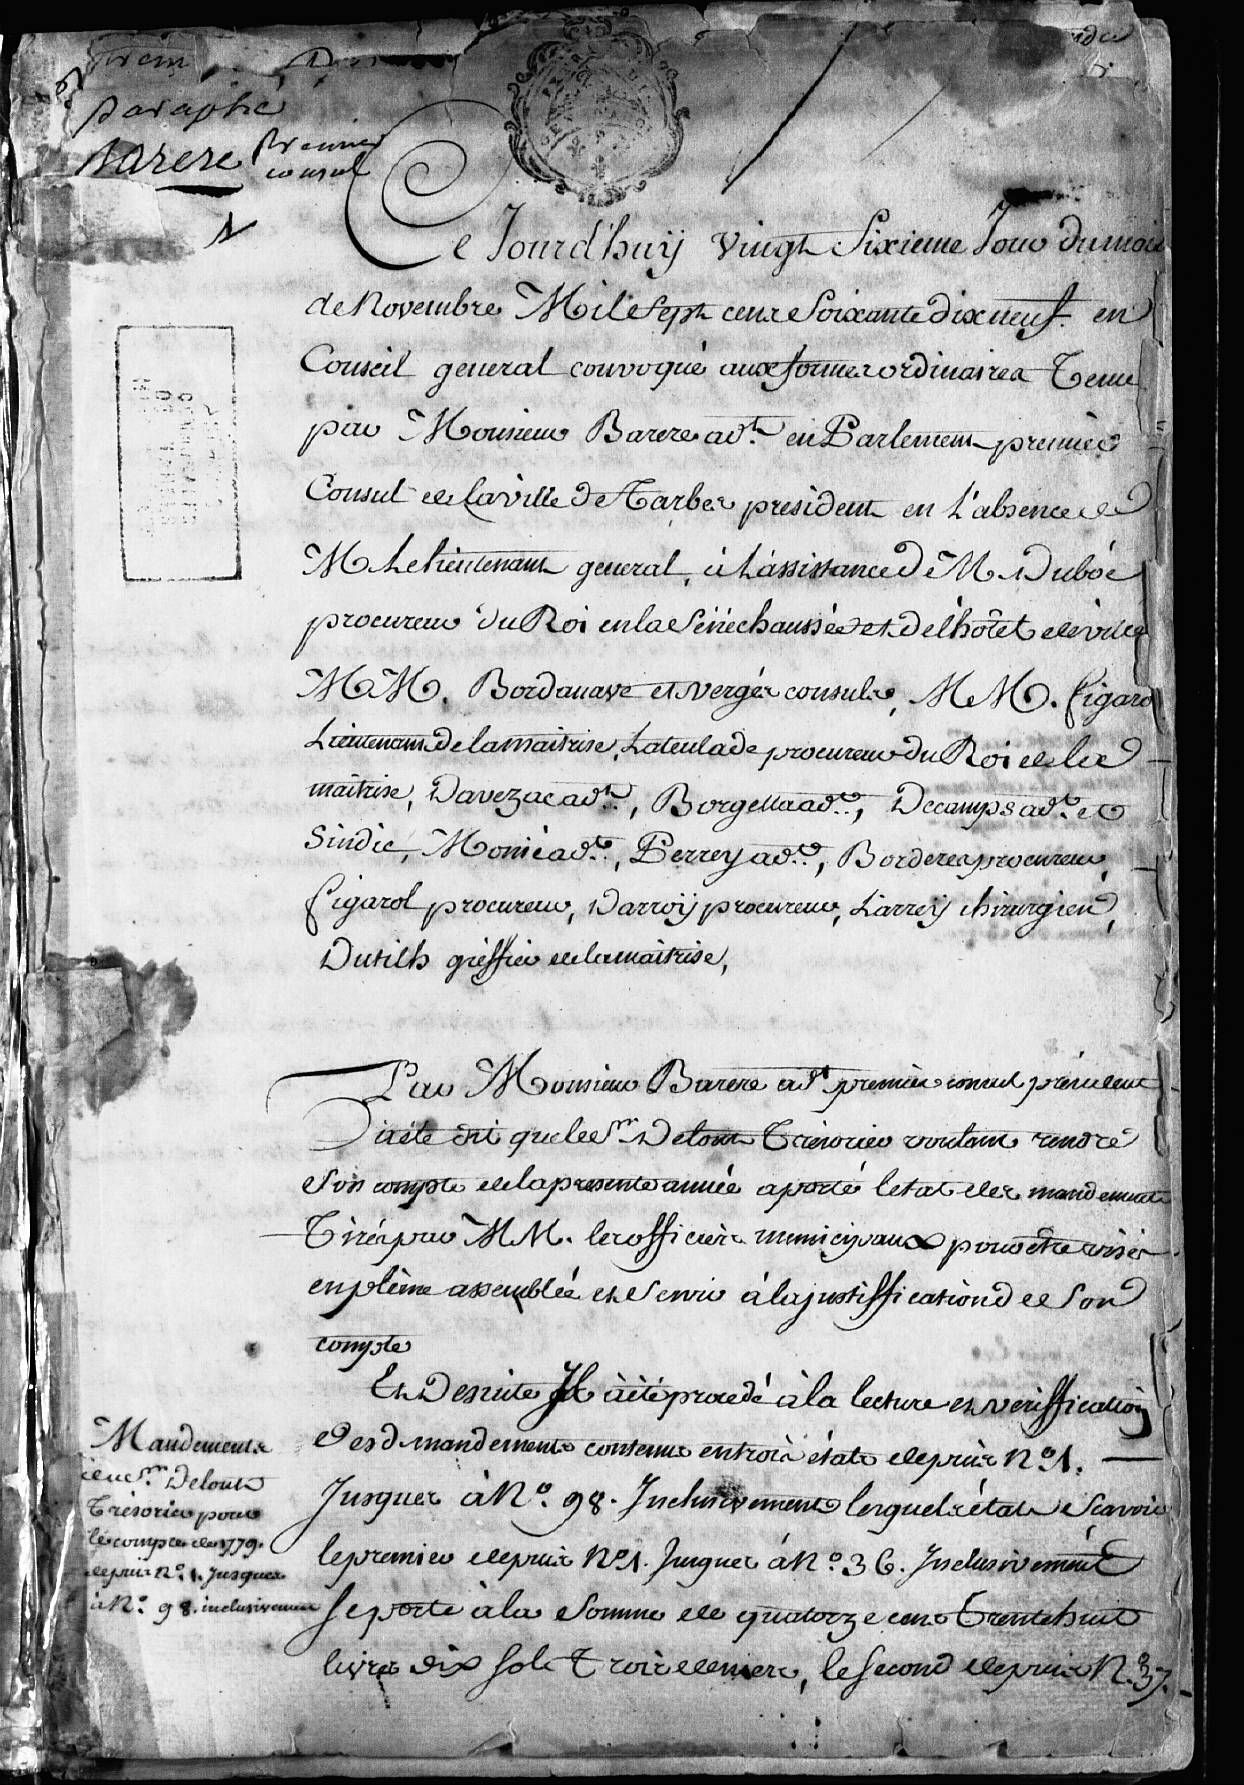 paraphé
Barere premier
consul
Ce Jourd'huy vingt Sixieme Jour du mois
de Novembre Mil Sept cens Soixante dix neuf en
Conseil general convoqué aux formes ordinaires Tenu
par Monsieur Barere adt. en Parlement premier
Consul de la ville de Tarbes president en l'absence de
M. le lieutenant general, à l'assistance de M. Duboé
procureur du Roi en la Sénéchaussée et de l'hôtel de ville
MM. Bordanave et Vergés consuls, MM. figarol
Lieutenant de la maitrise, Lateulade procureur du Roi de la
maitrise, Davezac adt., Borgella adt., Decamps adt. et
Sindic, Monié adt., Perrey adt., Borderes procureur,
figarol procureur, Darroy procureur, Larrey chirurgien,
Dutilh greffier de la maitrise,
Par Monsieur Barere adt. premier consul président
a été dit que le Sr. Delout Trésorier voulant rendre
Son compte de la presente année a porté letat des mandements
Tirés par MM. les officiers municipaux pour être visés
en pleine assemblée et Servir à la justiffication de Son
compte
Et De suite Il à été procedé à la lecture et veriffication
Des d. mandements contenus en trois états depuis No. 1.
Jusques à No. 98. Inclusivement lesquels états Scavoir
le premier depuis No. 1. Jusques à No. 36. Inclusivement
Se porte à la Somme de quatorze cens Trente huit
livres dix sols Trois deniers, le Second depuis No. 37.
Mandements
du Sr. Delout
Trésorier pour
le compte de 1779.
depuis No. 1. Jusques
à No. 98. inclusivement